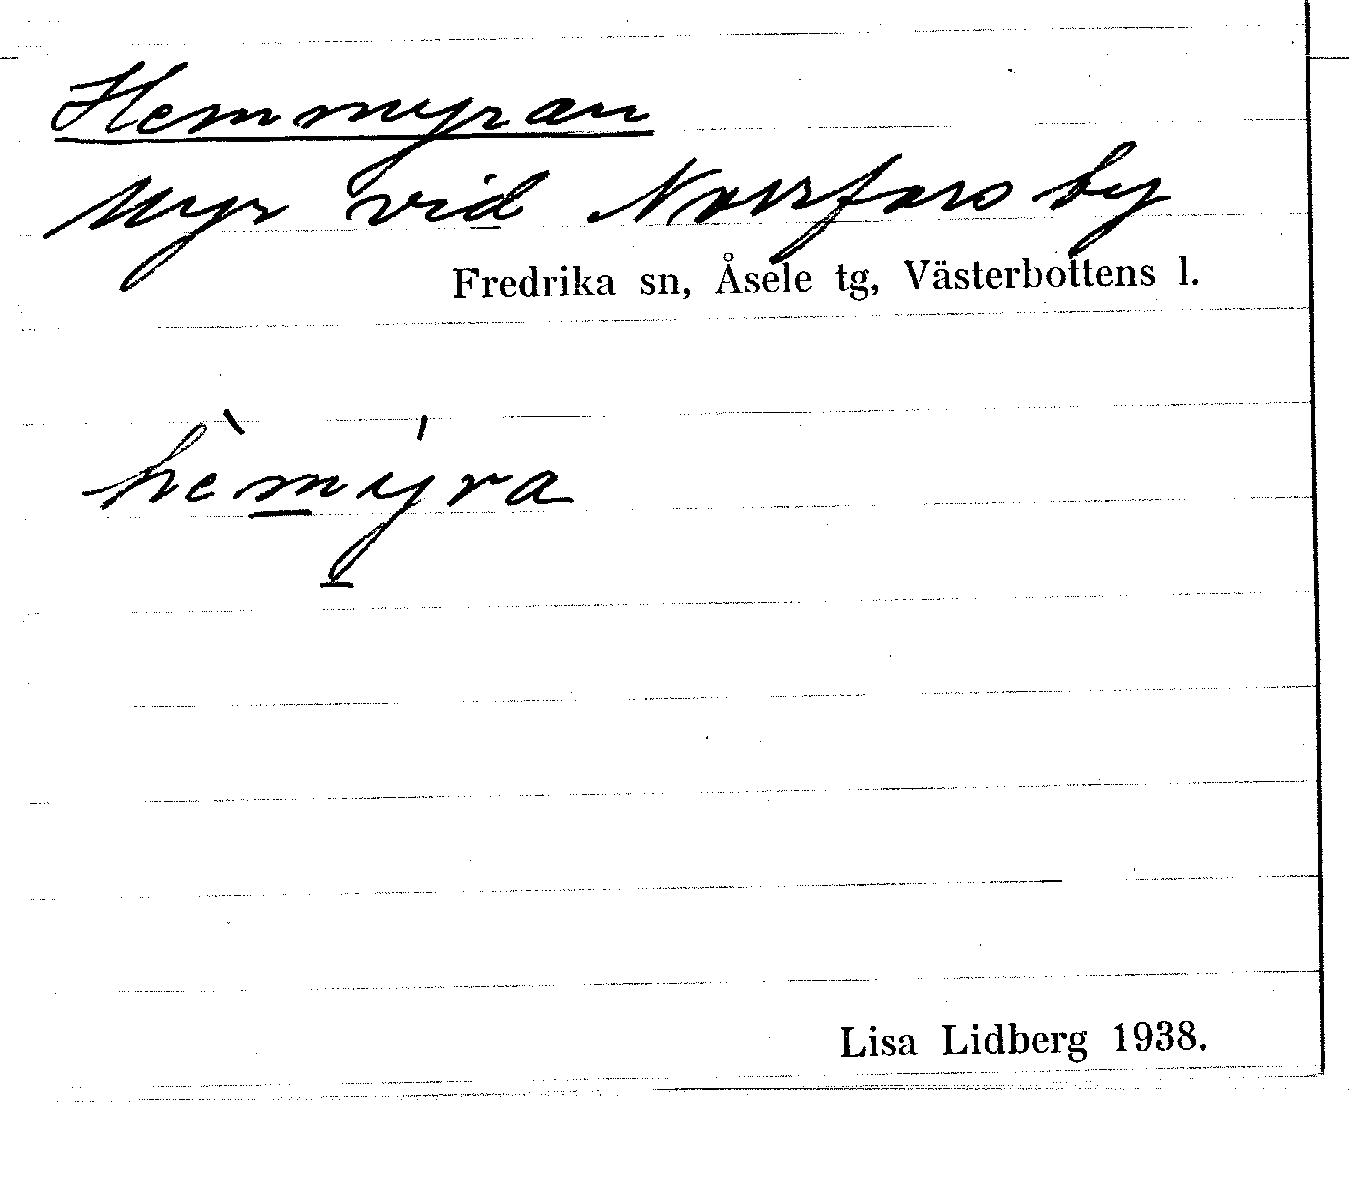 Hemmyran
Myr vid Norrfors by
Fredrika sn, Åsele tg, Västerbottens l.
hè̀mýra
Lisa Lidberg 1938.